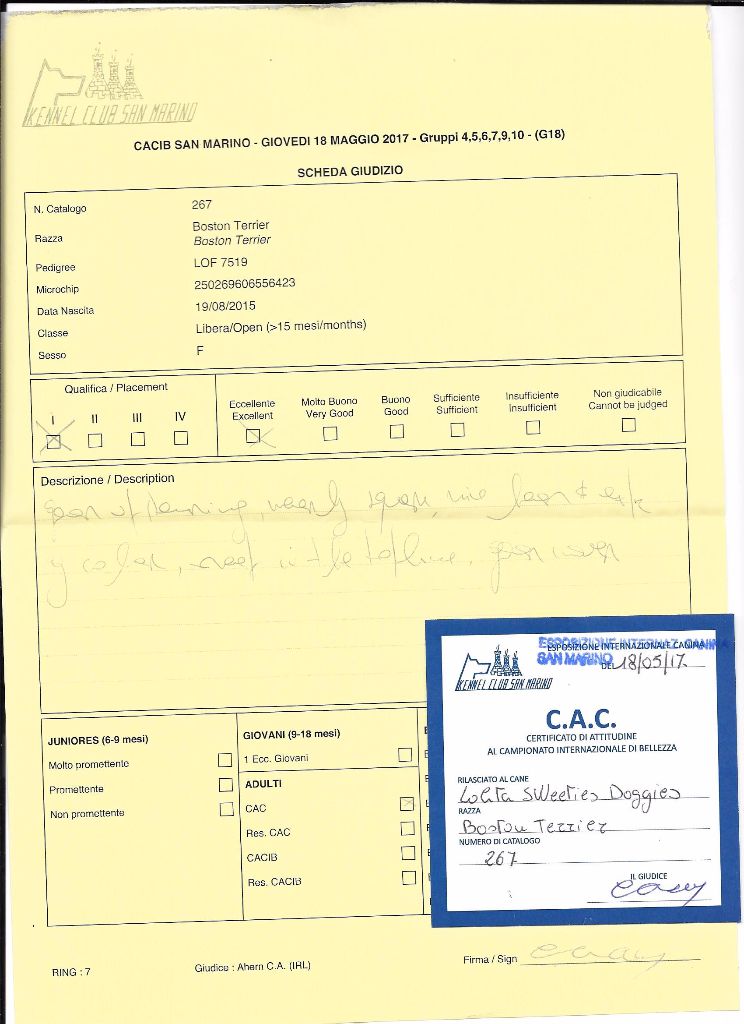 KENNEL CLUB SAN MARINO
CACIB SAN MARINO - GIOVEDI 18 MAGGIO 2017 - Gruppi 4,5,6,7,9,10 - (G18)
SCHEDA GIUDIZIO
N. Catalogo 267
Razza Boston Terrier
Boston Terrier
Pedigree LOF 7519
Microchip 250269606556423
Data Nascita 19/08/2015
Classe Libera/Open (>15 mesi/months)
Sesso F
Qualifica / Placement
I II III IV
Eccellente Molto Buono Buono Sufficiente Insufficiente Non giudicabile
Excellent Very Good Good Sufficient Insufficient Cannot be judged
Descrizione / Description
JUNIORES (6-9 mesi)
Molto promettente
Promettente
Non promettente
GIOVANI (9-18 mesi)
1 Ecc. Giovani
ADULTI
CAC
Res. CAC
CACIB
Res. CACIB
ESPOSIZIONE INTERNAZ. CANINA
SAN MARINO
ESPOSIZIONE INTERNAZIONALE CANINA
DEL 18/05/17
KENNEL CLUB SAN MARINO
C.A.C.
CERTIFICATO DI ATTITUDINE
AL CAMPIONATO INTERNAZIONALE DI BELLEZZA
RILASCIATO AL CANE
Lolita Sweeties Doggies
RAZZA
Boston Terrier
NUMERO DI CATALOGO
267
IL GIUDICE
RING : 7
Giudice : Ahern C.A. (IRL)
Firma / Sign